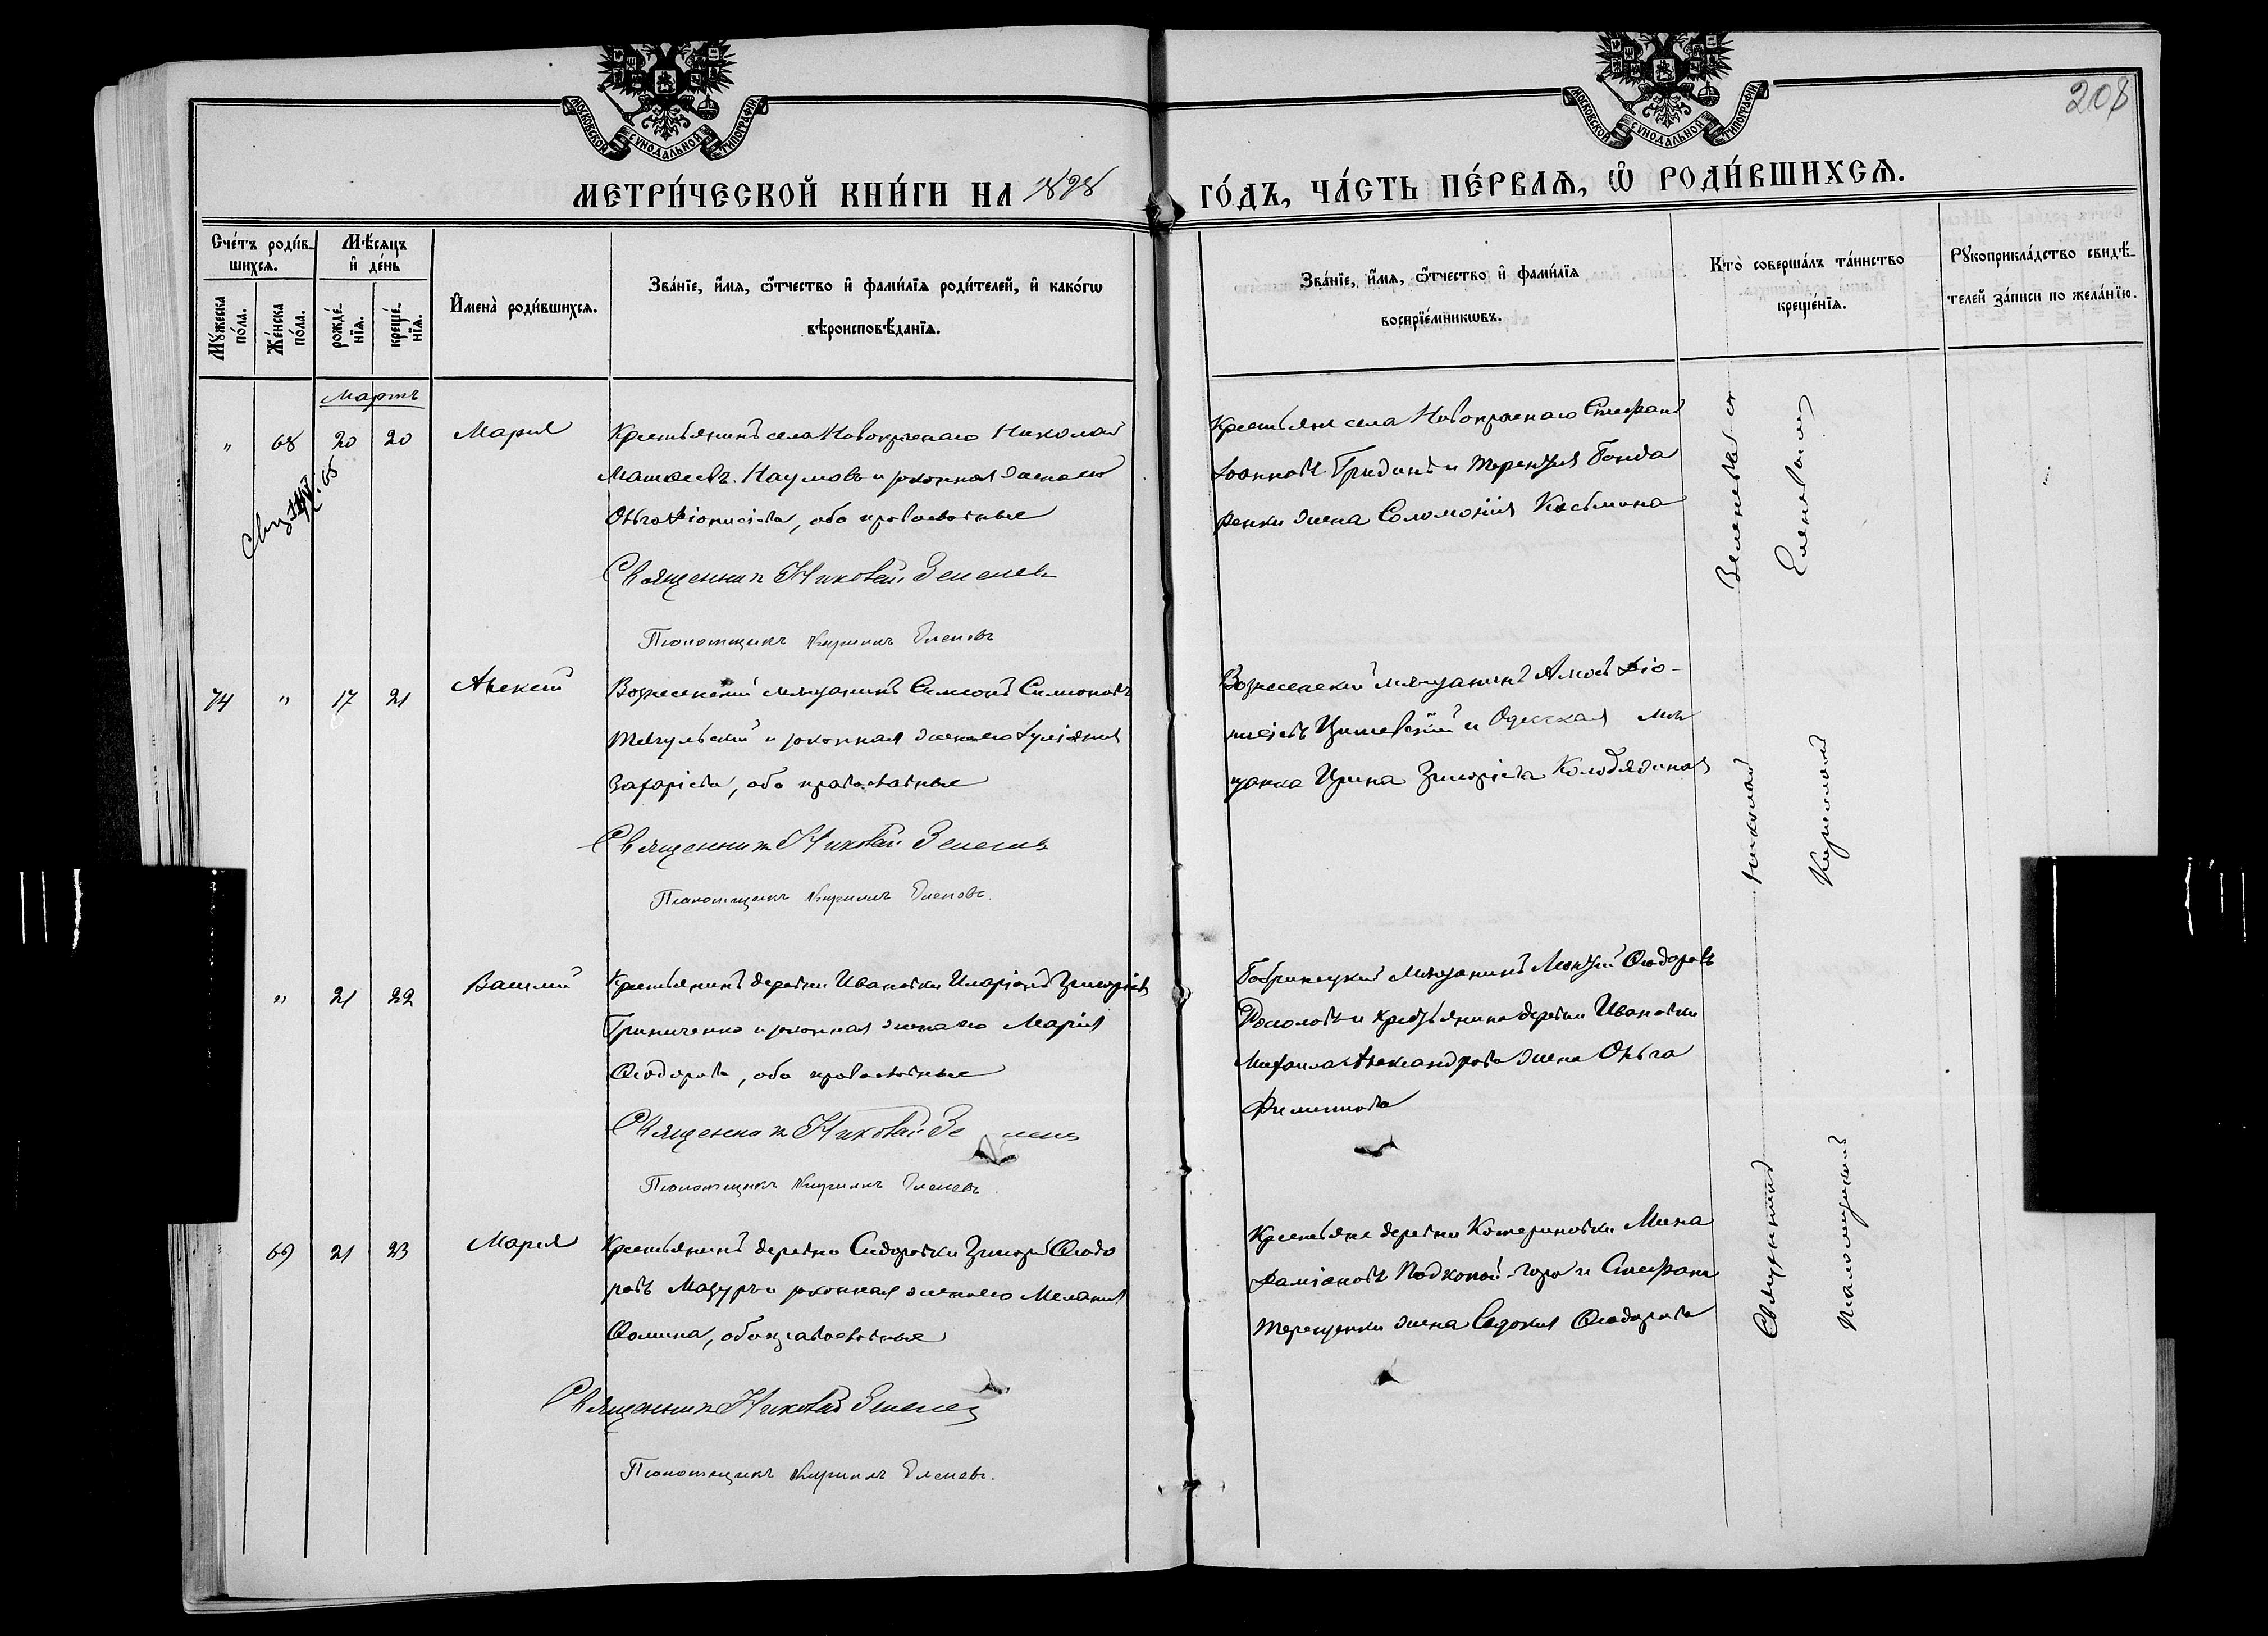 208
МОСКОВСКОЙ СѴНОДАЛЬНОЙ ТИПОГРАФІИ
МОСКОВСКОЙ СѴНОДАЛЬНОЙ ТИПОГРАФІИ
МЕТРИ́ЧЕСКОЙ КНИ́ГИ НА 1898 ГО́ДЪ, ЧА́СТЬ ПЕ́РВАѦ, Ѡ҆ РОДИ́ВШИХСѦ.
Сче́тъ роди́в-
шихсѧ.
Мꙋ́жеска по́ла.
Же́нска по́ла.
Мѣ́сѧцъ
и҆ де́нь
рожде́-
нїѧ.
креще́-
нїѧ.
И҆мена̀ роди́вшихсѧ.
Зва́нїе, и҆́мѧ, ѻ҆́тчество и҆ фами́лїѧ роди́телей, и҆ како́гѡ
вѣроисповѣ́данїѧ.
Зва́нїе, и҆́мѧ, ѻ҆́тчество и҆ фами́лїѧ
воспрїе́мникѡвъ.
Кто̀ соверша́лъ та́инство
креще́нїѧ.
Рꙋкоприкла́дство свидѣ́-
телей за́писи по жела́нїю.
Мартъ
" 68 20 20 Марія
Крестьянинъ села Новокраснаго Николай
Матѳеевъ Наумовъ и законная жена его
Ольга Діонисіева, оба православные
Священникъ Николай Зеленевъ
Псаломщикъ Кириллъ Еленевъ
Крестьяне села Новокраснаго Стефанъ
Іоанновъ Гридинъ и Терентія Бонда
ренки жена Соломонія Косьмина
74 " 17 21 Алексій
Вознесенскій мѣщанинъ Симеонъ Симеоновъ
Тягульскій и законная жена его Іуліанія
Захаріева, оба православные
Священникъ Николай Зеленевъ
Псаломщикъ Кириллъ Еленевъ.
Вознесенскій мѣщанинъ Амосъ Діо-
нисіевъ и Одесская мѣ
щанка Ирина Григоріева Колодяжная
" 21 22 Василій
Крестьянинъ деревни Ивановки Иларіонъ Григоріевъ
Гриниченко и законная жена его Марія
Ѳеодорова, оба православные
Священникъ Николай Зеленевъ
Псаломщикъ Кириллъ Еленевъ.
Бобринецкій мѣщанинъ Леонтій Ѳеодоровъ
и крестьянина деревни Ивановки
Михаила Александрова жена Ольга
Филиппова
69 21 23 Марія
Крестьянинъ деревни Сидоровки Григорій Ѳеодо
ровъ Мазуръ и законная жена его Меланія
Ѳомина, оба православные
Священникъ Николай Зеленевъ
Псаломщикъ Кириллъ Еленевъ.
Крестьяне деревни Катериновки Мина
Даміановъ Подкопай-гора и Стефана
Терещенки жена Евдокія Ѳеодорова
Священникъ Николай Зеленевъ съ
Псаломщикомъ Кирилломъ Еленевымъ